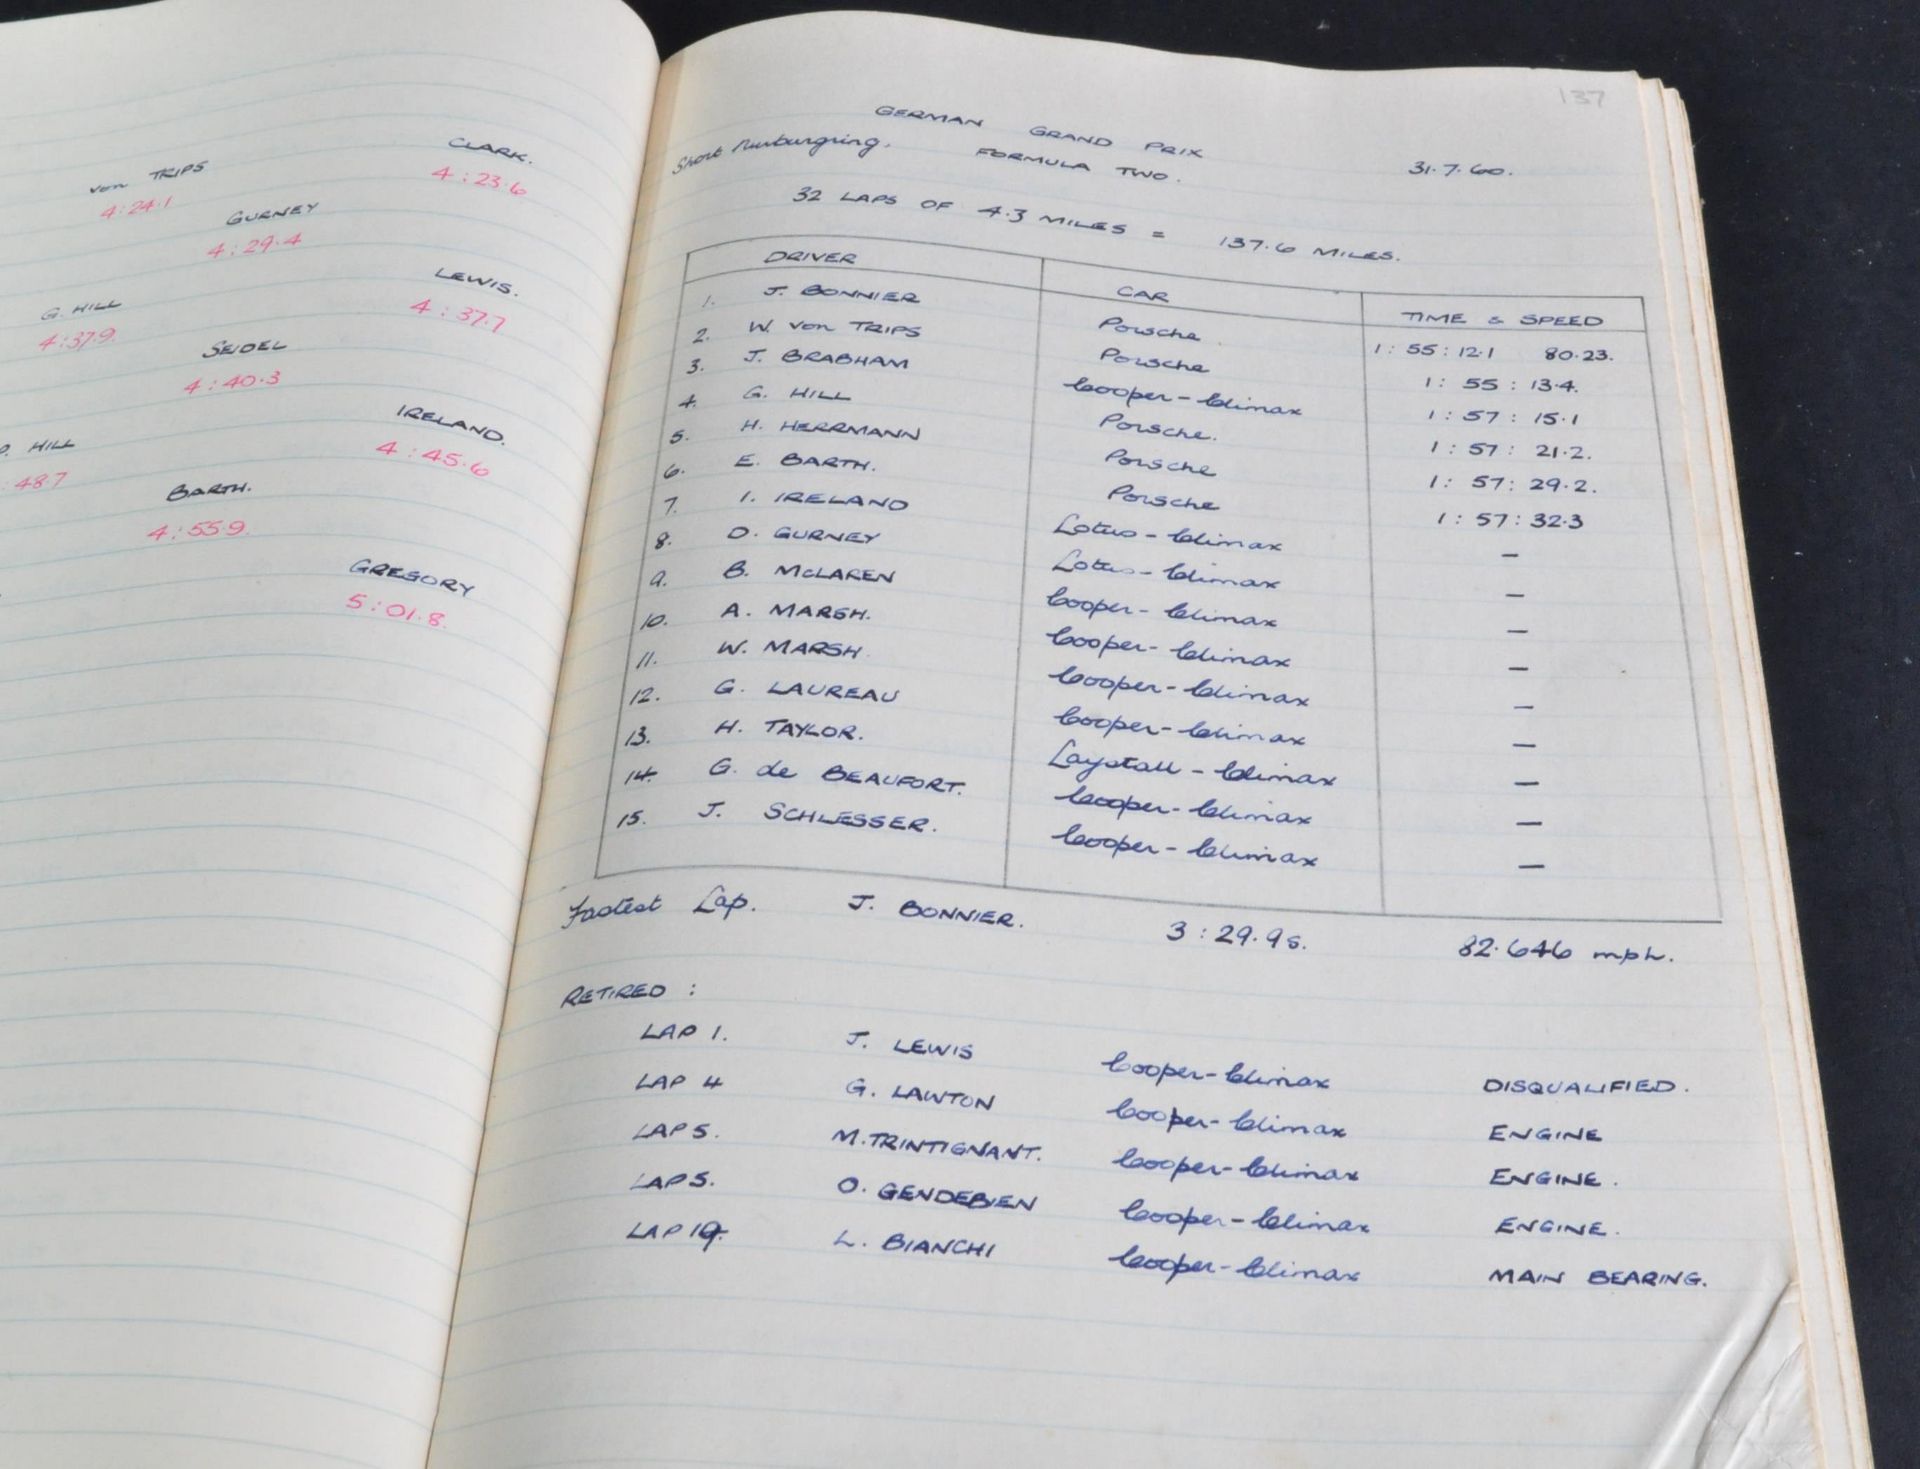 CLARK.
4:23.6
von TRIPS
4:24.1
GURNEY
4:29.4
LEWIS.
4:37.7
G. HILL
4:37.9.
SEIDEL
4:40.3
IRELAND.
4:45.6
HILL
:48.7
BARTH.
4:55.9.
GREGORY
5:01.8.
137
GERMAN GRAND PRIX
Short Nurburgring. FORMULA TWO. 31.7.60.
32 LAPS OF 4.3 MILES = 137.6 MILES.
DRIVER CAR TIME & SPEED
1. J. BONNIER Porsche 1:55:12.1 80.23.
2. W. von TRIPS Porsche 1:55:13.4.
3. J. BRABHAM Cooper-Climax 1:57:15.1
4. G. HILL Porsche. 1:57:21.2.
5. H. HERRMANN Porsche 1:57:29.2.
6. E. BARTH. Porsche 1:57:32.3
7. I. IRELAND Lotus-Climax —
8. D. GURNEY Lotus-Climax —
9. B. McLAREN Cooper-Climax —
10. A. MARSH. Cooper-Climax —
11. W. MARSH. Cooper-Climax —
12. G. LAUREAU Cooper-Climax —
13. H. TAYLOR. Laystall-Climax —
14. G. de BEAUFORT. Cooper-Climax —
15. J. SCHLESSER. Cooper-Climax —
Fastest Lap. J. BONNIER. 3:29.9s. 82.646 mph.
RETIRED:
LAP 1. J. LEWIS Cooper-Climax DISQUALIFIED.
LAP 4 G. LAWTON Cooper-Climax ENGINE
LAP 5. M. TRINTIGNANT. Cooper-Climax ENGINE.
LAP 5. O. GENDEBIEN Cooper-Climax ENGINE.
LAP 19. L. BIANCHI Cooper-Climax MAIN BEARING.